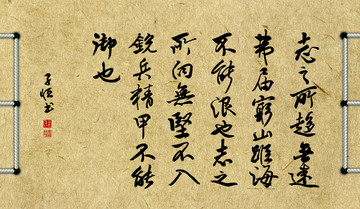 志之所趋無遠
弗届窮山距海
不能限也志之
所向無堅不入
銳兵精甲不能
御也
子恒书